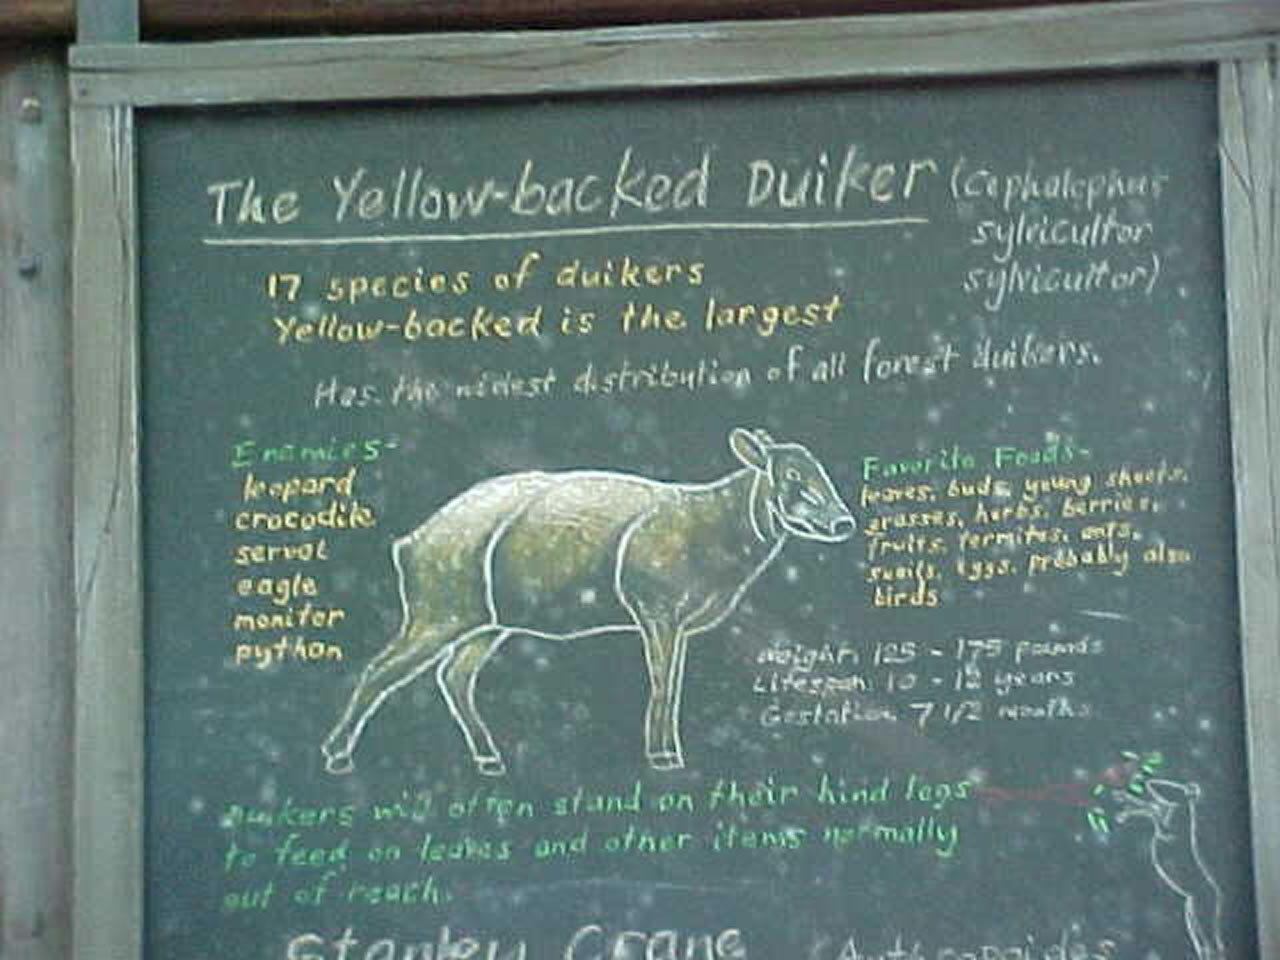 The Yellow-backed Duiker (Cephalophus
sylvicultor
sylvicultor)
17 species of duikers
Yellow-backed is the largest
Has the widest distribution of all forest duikers.
Enemies-
leopard
crocodile
serval
eagle
monitor
python
Favorite Foods-
leaves, buds, young shoots,
grasses, herbs, berries,
fruits, termites, ants,
snails, eggs, probably also
birds
Weight, 125 - 175 pounds
Lifespan, 10 - 12 years
Gestation, 7 1/2 months
Duikers will often stand on their hind legs
to feed on leaves and other items normally
out of reach.
Stanley Crane (Anthropoides